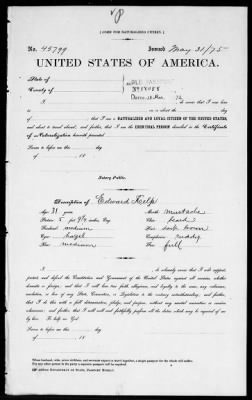 [FORM FOR NATURALIZED CITIZEN.]
No. 45799 Issued May 31/75
UNITED STATES OF AMERICA.
State of
County of
I do swear that I was born
that I am a NATURALIZED AND LOYAL CITIZEN OF THE UNITED STATES,
and about to travel abroad; and further, that I am the IDENTICAL PERSON described in the Certificate
of Naturalization herewith presented.
Sworn to before me this day
of 18
Notary Public.
Description of Edward Kelp
Age: 31 years Mouth: mustache
Stature: 5 feet 9 1/4 inches, Eng. Chin: beard
Forehead: medium Hair: dark brown
Eyes: hazel Complexion: ruddy
Nose: medium Face: full
I do solemnly swear that I will support,
protect, and defend the Constitution and Government of the United States against all enemies, whether
domestic or foreign; and that I will bear true faith, allegiance, and loyalty to the same, any ordinance,
resolution, or law of any State, Convention, or Legislature to the contrary notwithstanding; and further,
that I do this with a full determination, pledge, and purpose, without any mental reservation or evasion
whatsoever; and further, that I will well and faithfully perform all the duties which may be required of me
by law. So help me God.
Sworn to before me this day
of 18
When husband, wife, minor children, and servants expect to travel together, a single passport for the whole will suffice.
For any other person in the party a separate passport will be required.